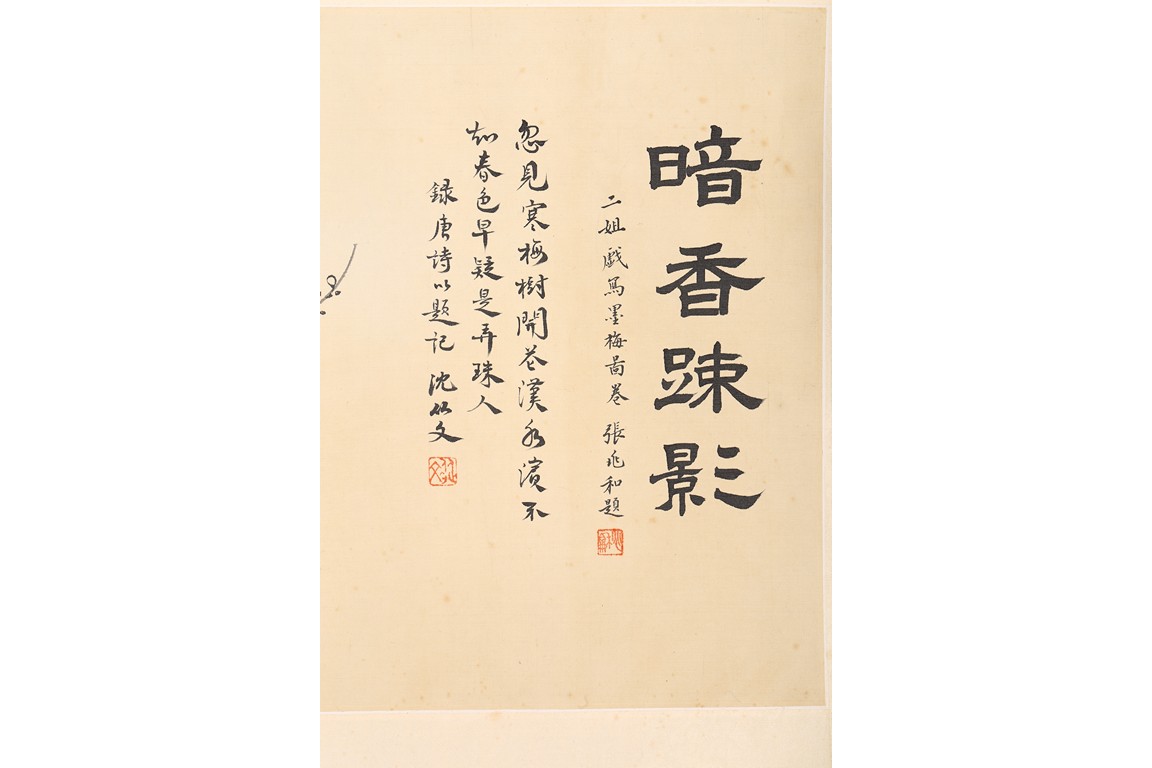 暗香踈影
二姐戯写墨梅啚卷 張兆和題
忽見寒梅樹開花漢水濱不
知春色早疑是弄珠人
録唐詩以題記 沈從文